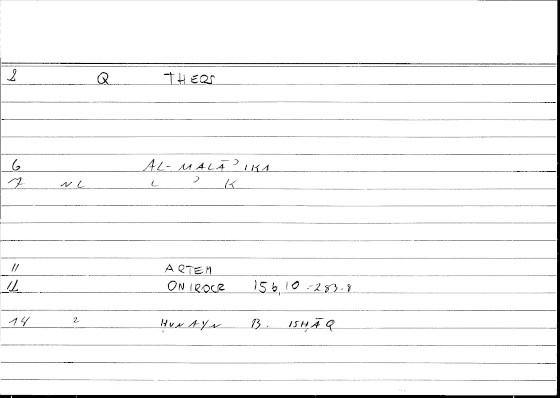 8 Q THEQS
6 AL-MALĀʾIKA
7 NL L ʾ K
11 ARTEM
12 ONIROCR 156,10-283.8
14 2 ḤUNAYN B. ISḤĀQ